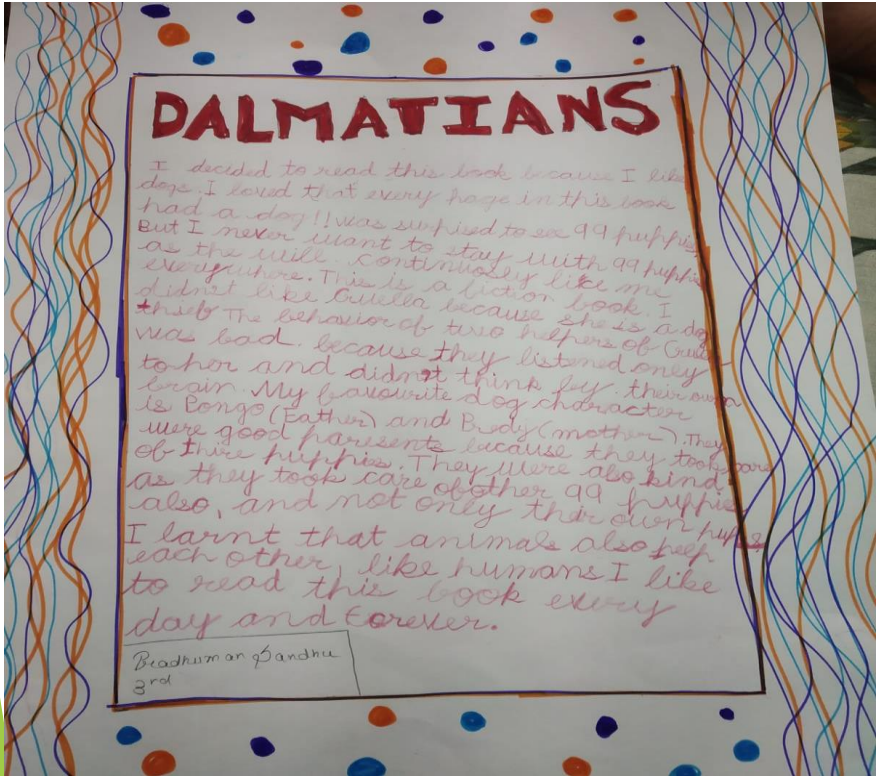 DALMATIANS
I decided to read this book because I like
dogs. I loved that every page in this book
had a dog!! was surprised to see 99 puppies
But I never want to stay with 99 puppies
as the will continuosly like me
everywhere. This is a fiction book. I
didnet like Cruella because she is a dog
thief The behavior of two helpers of Cruella
was bad. because they listened only
to hor and didn't think by their own
brain. My favourite dog character
is Pongo (Father) and Predy (mother). They
were good paresents because they took care
of thire puppies. They were also kind
as they took care of other 99 puppies
also, and not only their own pupies
I larnt that animals also help
each other, like humans I like
to read this book every
day and Forever.
Pradhuman Sandhu
3rd